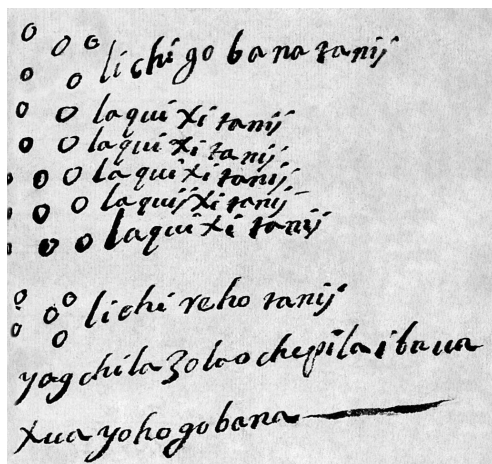 lichi go bana tanij
laqui xi tanij
laqui xi tanij
laqui xi tanij
laquij xi tanij
laqui xi tanij
lichi reho tanij
yag chila zolao chepila ibaua
xua yoho gobana